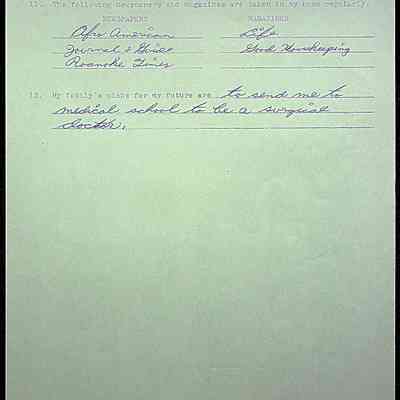 11. The following newspapers and magazines are taken in my home regularly.
NEWSPAPERS MAGAZINES
Afro American Life
Journal & Guide Good Housekeeping
Roanoke Times
12. My family's plans for my future are to send me to
medical school to be a surgical
doctor.